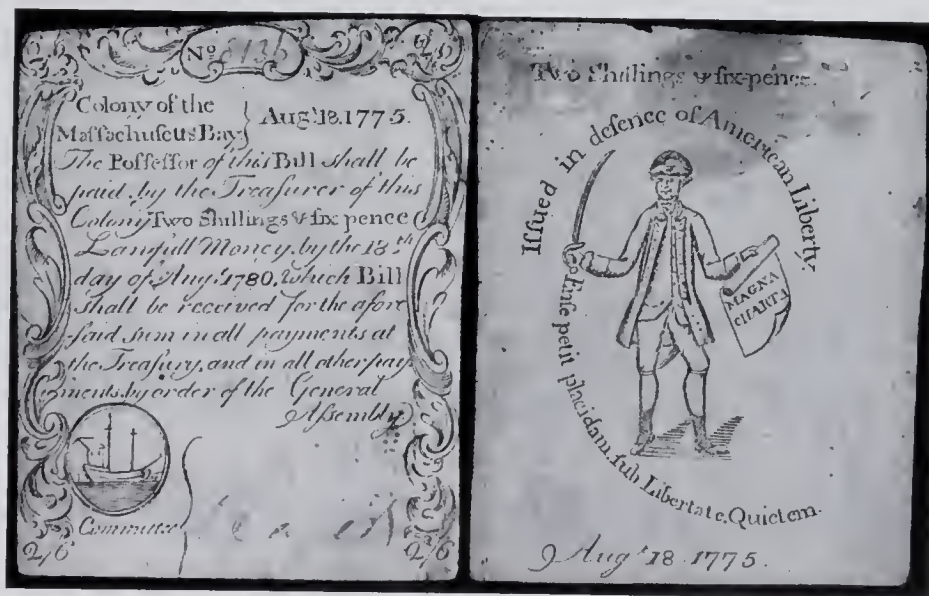 No
Colony of the
Massachusetts Bay } Augt. 18. 1775.
The Possessor of this Bill shall be
paid by the Treasurer of this
Colony Two Shillings & six pence
Lawfull Money, by the 18th
day of Augt. 1780. Which Bill
shall be received for the afore
said sum in all payments at
the Treasury, and in all other pay
ments by order of the General
Assembly
Committee
2/6
2/6
Two Shillings & six-pence.
Issued in defence of American Liberty.
MAGNA
CHARTA
Ense petit placidam, sub Libertate, Quietem.
Augt. 18 1775.